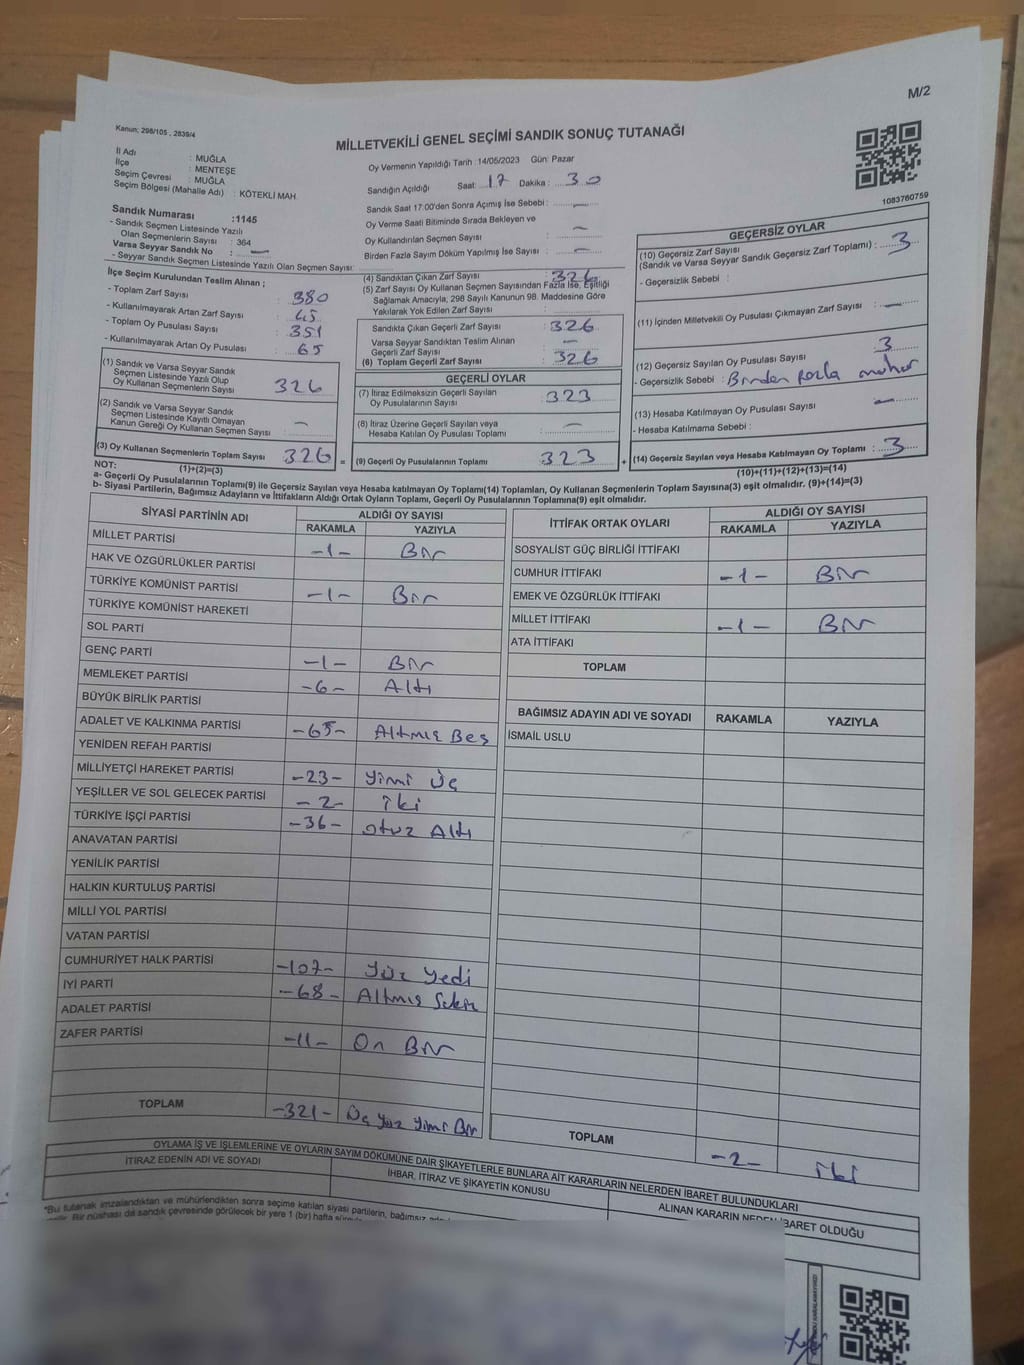 M/2
Kanun; 298/105 , 2839/4
MİLLETVEKİLİ GENEL SEÇİMİ SANDIK SONUÇ TUTANAĞI
İl Adı : MUĞLA
İlçe : MENTEŞE
Seçim Çevresi : MUĞLA
Seçim Bölgesi (Mahalle Adı) : KÖTEKLİ MAH.
Sandık Numarası :1145
- Sandık Seçmen Listesinde Yazılı
Olan Seçmenlerin Sayısı : 364
Varsa Seyyar Sandık No : —
- Seyyar Sandık Seçmen Listesinde Yazılı Olan Seçmen Sayısı:
Oy Vermenin Yapıldığı Tarih :14/05/2023 Gün: Pazar
Sandığın Açıldığı Saat: 17 Dakika : 30
Sandık Saat 17:00'den Sonra Açımış İse Sebebi : —
Oy Verme Saati Bitiminde Sırada Bekleyen ve
Oy Kullandırılan Seçmen Sayısı : —
Birden Fazla Sayım Döküm Yapılmış İse Sayısı : —
1083760759
İlçe Seçim Kurulundan Teslim Alınan ;
- Toplam Zarf Sayısı : 380
- Kullanılmayarak Artan Zarf Sayısı : 45
- Toplam Oy Pusulası Sayısı : 351
- Kullanılmayarak Artan Oy Pusulası : 65
(1) Sandık ve Varsa Seyyar Sandık
Seçmen Listesinde Yazılı Olup
Oy Kullanan Seçmenlerin Sayısı : 326
(2) Sandık ve Varsa Seyyar Sandık
Seçmen Listesinde Kayıtlı Olmayan
Kanun Gereği Oy Kullanan Seçmen Sayısı : —
(3) Oy Kullanan Seçmenlerin Toplam Sayısı : 326 =
(1)+(2)=(3)
(4) Sandıktan Çıkan Zarf Sayısı : 326
(5) Zarf Sayısı Oy Kullanan Seçmen Sayısından Fazla İse, Eşitliği
Sağlamak Amacıyla, 298 Sayılı Kanunun 98. Maddesine Göre
Yakılarak Yok Edilen Zarf Sayısı :
Sandıkta Çıkan Geçerli Zarf Sayısı : 326
Varsa Seyyar Sandıktan Teslim Alınan
Geçerli Zarf Sayısı : —
(6) Toplam Geçerli Zarf Sayısı : 326
GEÇERLİ OYLAR
(7) İtiraz Edilmeksizin Geçerli Sayılan
Oy Pusulalarının Sayısı : 323
(8) İtiraz Üzerine Geçerli Sayılan veya
Hesaba Katılan Oy Pusulası Toplamı : —
(9) Geçerli Oy Pusulalarının Toplamı : 323 +
GEÇERSİZ OYLAR
(10) Geçersiz Zarf Sayısı
(Sandık ve Varsa Seyyar Sandık Geçersiz Zarf Toplamı) : 3
- Geçersizlik Sebebi :
(11) İçinden Milletvekili Oy Pusulası Çıkmayan Zarf Sayısı : —
(12) Geçersiz Sayılan Oy Pusulası Sayısı : 3
- Geçersizlik Sebebi : Birden fazla mühür
(13) Hesaba Katılmayan Oy Pusulası Sayısı : —
- Hesaba Katılmama Sebebi :
(14) Geçersiz Sayılan veya Hesaba Katılmayan Oy Toplamı : 3
(10)+(11)+(12)+(13)=(14)
NOT:
a- Geçerli Oy Pusulalarının Toplamı(9) ile Geçersiz Sayılan veya Hesaba katılmayan Oy Toplamı(14) Toplamları, Oy Kullanan Seçmenlerin Toplam Sayısına(3) eşit olmalıdır. (9)+(14)=(3)
b- Siyasi Partilerin, Bağımsız Adayların ve İttifakların Aldığı Ortak Oyların Toplamı, Geçerli Oy Pusulalarının Toplamına(9) eşit olmalıdır.
SİYASİ PARTİNİN ADI ALDIĞI OY SAYISI
RAKAMLA YAZIYLA
MİLLET PARTİSİ -1- Bir
HAK VE ÖZGÜRLÜKLER PARTİSİ
TÜRKİYE KOMÜNİST PARTİSİ -1- Bir
TÜRKİYE KOMÜNİST HAREKETİ
SOL PARTİ
GENÇ PARTİ -1- Bir
MEMLEKET PARTİSİ -6- Altı
BÜYÜK BİRLİK PARTİSİ
ADALET VE KALKINMA PARTİSİ -65- Altmış Beş
YENİDEN REFAH PARTİSİ
MİLLİYETÇİ HAREKET PARTİSİ -23- Yirmi Üç
YEŞİLLER VE SOL GELECEK PARTİSİ -2- İki
TÜRKİYE İŞÇİ PARTİSİ -36- Otuz Altı
ANAVATAN PARTİSİ
YENİLİK PARTİSİ
HALKIN KURTULUŞ PARTİSİ
MİLLİ YOL PARTİSİ
VATAN PARTİSİ
CUMHURİYET HALK PARTİSİ -107- Yüz Yedi
İYİ PARTİ -68- Altmış Sekiz
ADALET PARTİSİ
ZAFER PARTİSİ -11- On Bir
TOPLAM -321- Üç Yüz Yirmi Bir
İTTİFAK ORTAK OYLARI ALDIĞI OY SAYISI
RAKAMLA YAZIYLA
SOSYALİST GÜÇ BİRLİĞİ İTTİFAKI
CUMHUR İTTİFAKI -1- Bir
EMEK VE ÖZGÜRLÜK İTTİFAKI
MİLLET İTTİFAKI -1- Bir
ATA İTTİFAKI
TOPLAM
BAĞIMSIZ ADAYIN ADI VE SOYADI RAKAMLA YAZIYLA
İSMAİL USLU
TOPLAM -2- İki
OYLAMA İŞ VE İŞLEMLERİNE VE OYLARIN SAYIM DÖKÜMÜNE DAİR ŞİKAYETLERLE BUNLARA AİT KARARLARIN NELERDEN İBARET BULUNDUKLARI
İTİRAZ EDENİN ADI VE SOYADI
İHBAR, İTİRAZ VE ŞİKAYETİN KONUSU
ALINAN KARARIN NEDEN İBARET OLDUĞU
*Bu tutanak imzalandıktan ve mühürlendikten sonra seçime katılan siyasi partilerin, bağımsız
Bir nüshası da sandık çevresinde görülecek bir yere 1 (bir) hafta